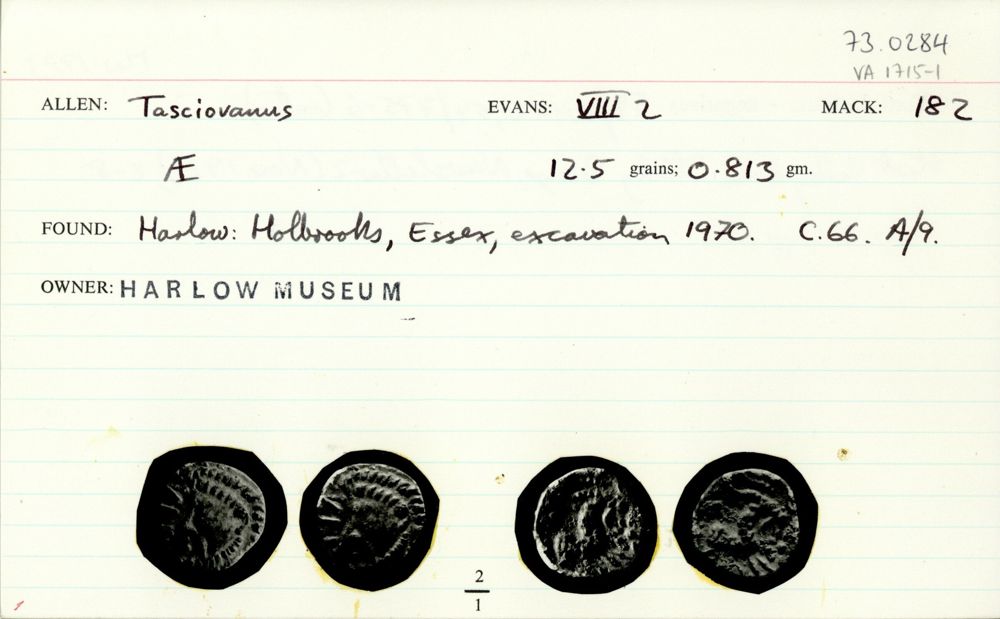 73.0284
VA 1715-1
ALLEN: Tasciovanus EVANS: VIII 2 MACK: 182
Æ 12.5 grains; 0.813 gm.
FOUND: Harlow: Holbrooks, Essex, excavation 1970. C.66. A/9.
OWNER: HARLOW MUSEUM
2
1